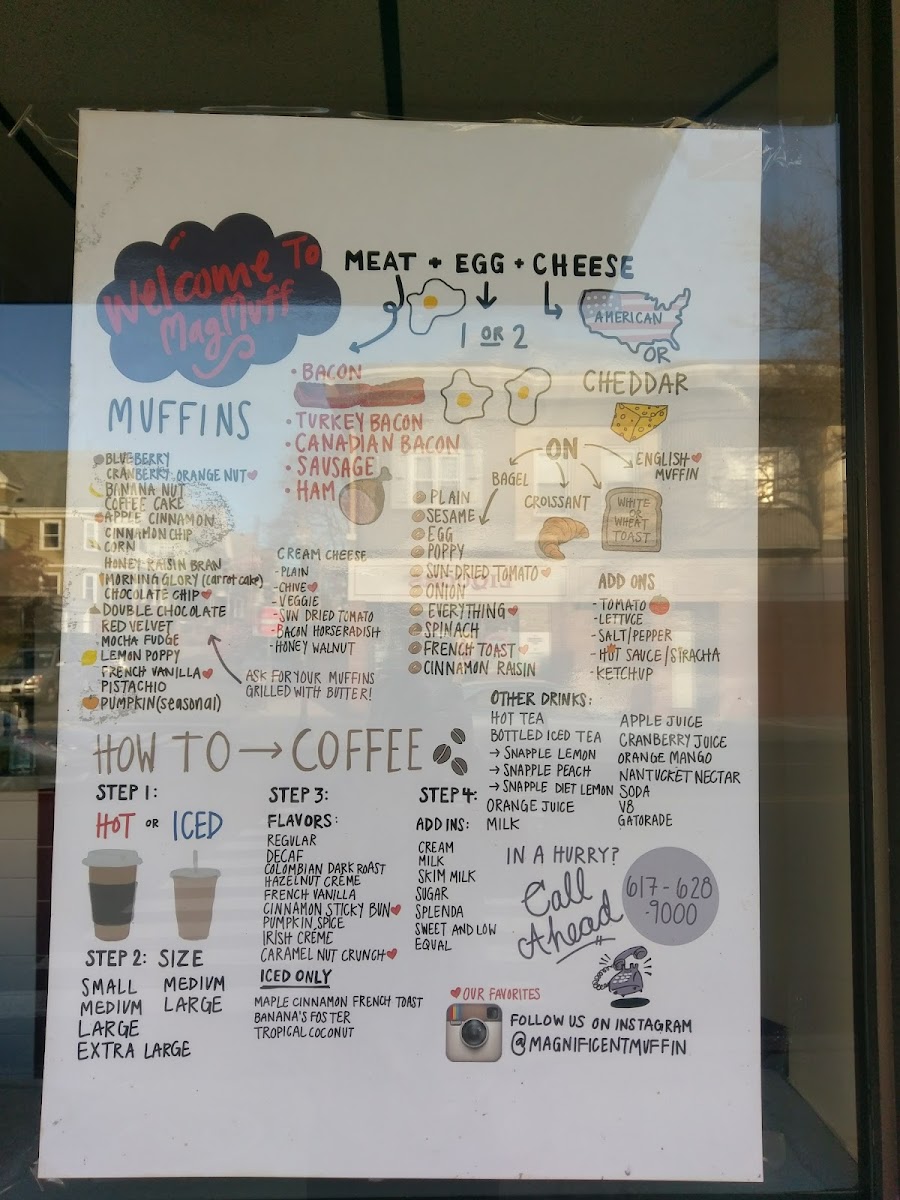 Welcome To
MagMuff
MEAT + EGG + CHEESE
1 OR 2
AMERICAN
OR
CHEDDAR
• BACON
• TURKEY BACON
• CANADIAN BACON
• SAUSAGE
• HAM
ON
BAGEL
CROISSANT
ENGLISH
MUFFIN
WHITE
OR
WHEAT
TOAST
PLAIN
SESAME
EGG
POPPY
SUN-DRIED TOMATO
ONION
EVERYTHING
SPINACH
FRENCH TOAST
CINNAMON RAISIN
ADD ONS
- TOMATO
- LETTUCE
- SALT/PEPPER
- HOT SAUCE/SIRACHA
- KETCHUP
MUFFINS
BLUEBERRY
CRANBERRY ORANGE NUT
BANANA NUT
COFFEE CAKE
APPLE CINNAMON
CINNAMON CHIP
CORN
HONEY RAISIN BRAN
MORNING GLORY (carrot cake)
CHOCOLATE CHIP
DOUBLE CHOCOLATE
RED VELVET
MOCHA FUDGE
LEMON POPPY
FRENCH VANILLA
PISTACHIO
PUMPKIN (seasonal)
CREAM CHEESE
- PLAIN
- CHIVE
- VEGGIE
- SUN DRIED TOMATO
- BACON HORSERADISH
- HONEY WALNUT
ASK FOR YOUR MUFFINS
GRILLED WITH BUTTER!
HOW TO → COFFEE
STEP 1:
HOT OR ICED
STEP 2: SIZE
SMALL
MEDIUM
LARGE
EXTRA LARGE
MEDIUM
LARGE
STEP 3:
FLAVORS:
REGULAR
DECAF
COLOMBIAN DARK ROAST
HAZELNUT CRÈME
FRENCH VANILLA
CINNAMON STICKY BUN
PUMPKIN SPICE
IRISH CRÈME
CARAMEL NUT CRUNCH
ICED ONLY
MAPLE CINNAMON FRENCH TOAST
BANANA'S FOSTER
TROPICAL COCONUT
STEP 4:
ADD INS:
CREAM
MILK
SKIM MILK
SUGAR
SPLENDA
SWEET AND LOW
EQUAL
OTHER DRINKS:
HOT TEA
BOTTLED ICED TEA
→ SNAPPLE LEMON
→ SNAPPLE PEACH
→ SNAPPLE DIET LEMON
ORANGE JUICE
MILK
APPLE JUICE
CRANBERRY JUICE
ORANGE MANGO
NANTUCKET NECTAR
SODA
V8
GATORADE
IN A HURRY?
Call
Ahead
617-628
-9000
OUR FAVORITES
FOLLOW US ON INSTAGRAM
@MAGNIFICENTMUFFIN